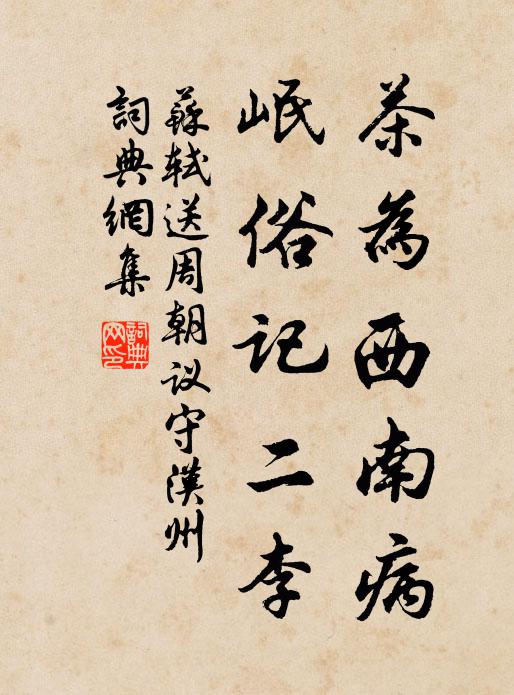 茶為西南病
岷俗記二李
蘇軾送周朝议守漢州
詞典網集
詞典网印